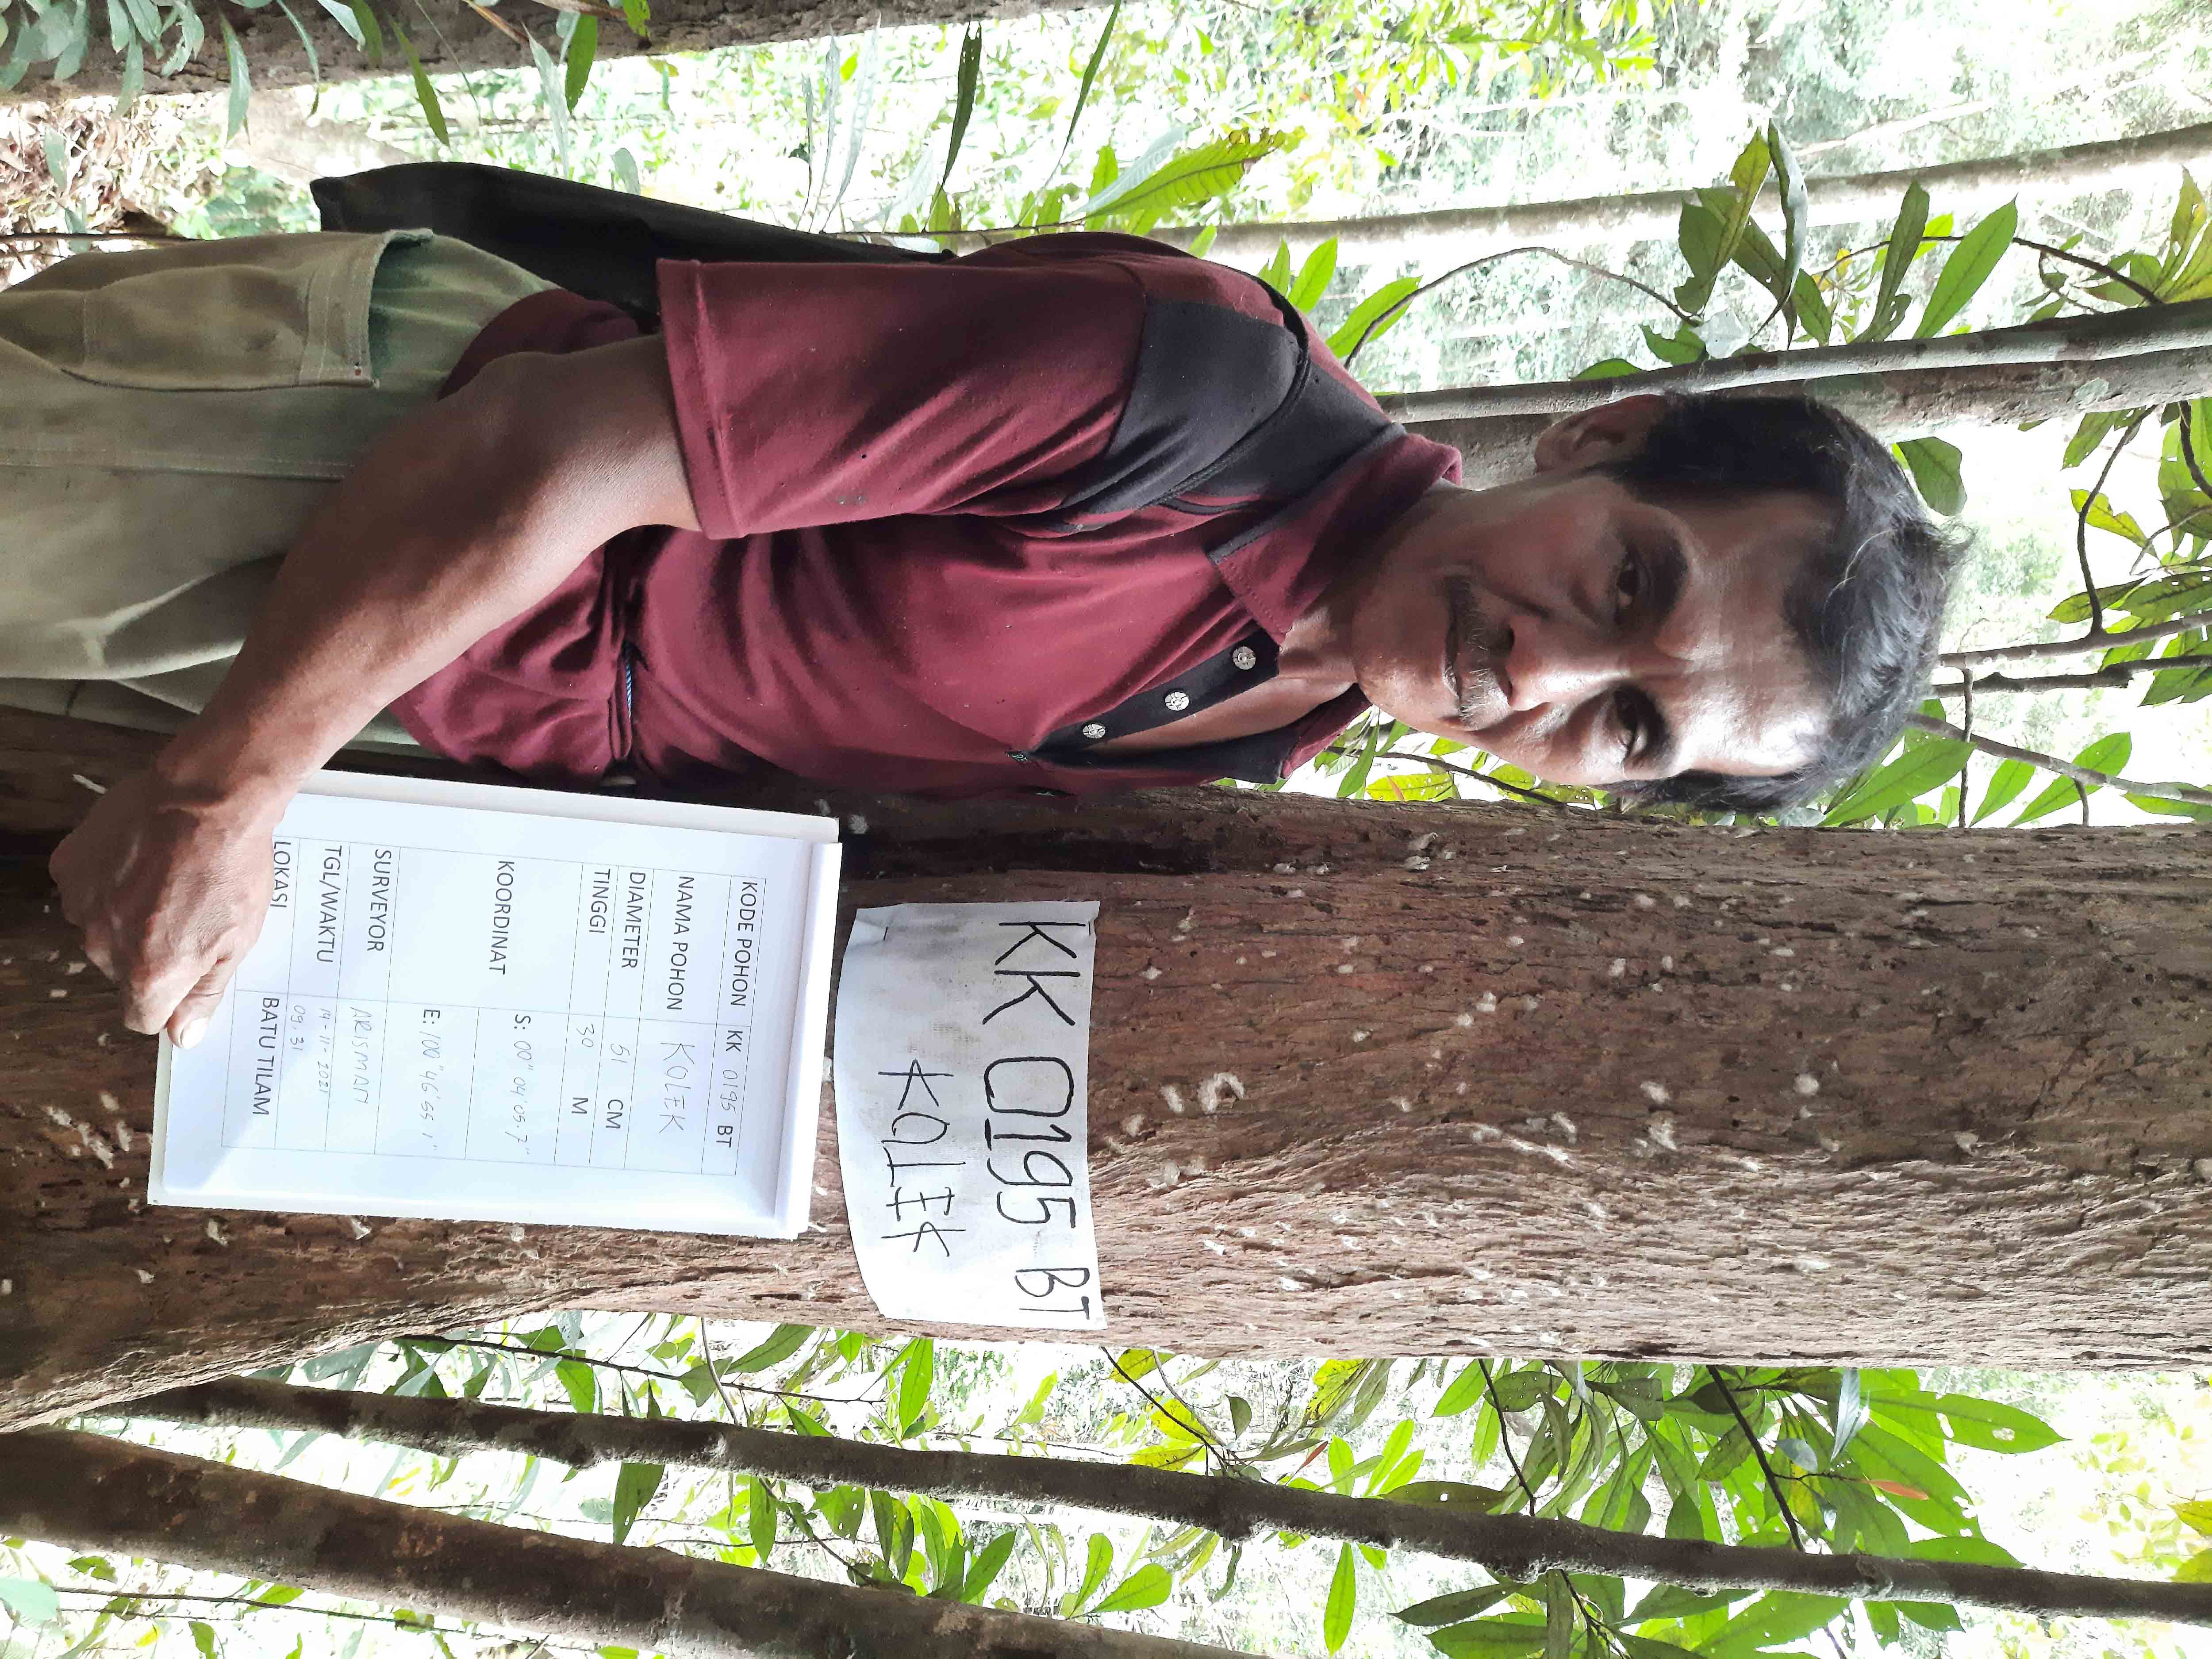 KK 0195 BT
KOLEK
KODE POHON KK 0195 BT
NAMA POHON KOLEK
DIAMETER 51 CM
TINGGI 30 M
KOORDINAT S: 00" 04' 05.7"
E: 100" 46' 55 1"
SURVEYOR ARISMAN
TGL/WAKTU 14-11-2021
09.31
LOKASI BATU TILAM